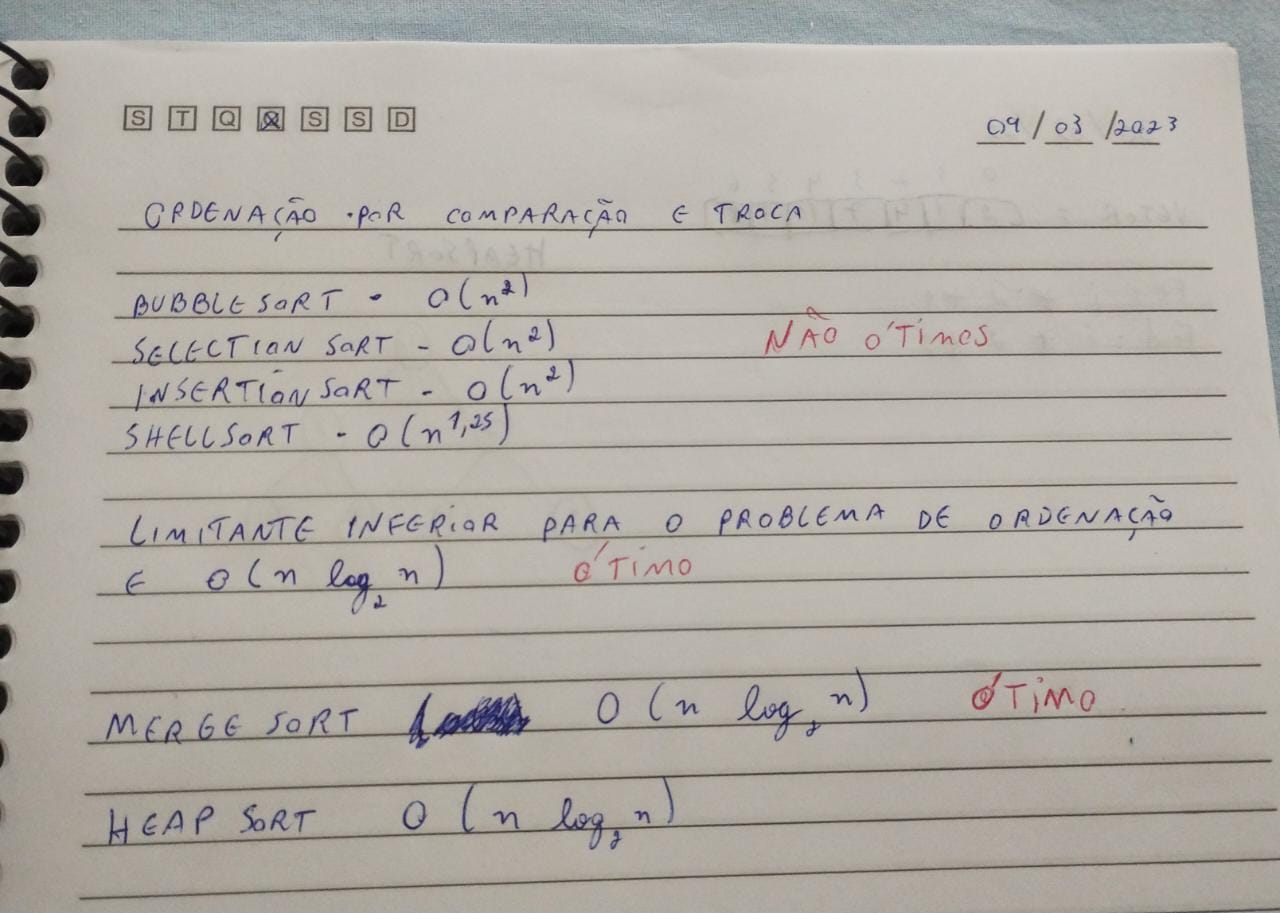 S T Q Q S S D
09/03/2023
ORDENAÇÃO POR COMPARAÇÃO E TROCA
BUBBLE SORT - O(n²)
SELECTION SORT - O(n²) NÃO ÓTIMOS
INSERTION SORT - O(n²)
SHELLSORT - O(n^1,25)
LIMITANTE INFERIOR PARA O PROBLEMA DE ORDENAÇÃO
E O(n log₂ n) ÓTIMO
MERGE SORT O(n log₂ n) ÓTIMO
HEAP SORT O(n log₂ n)